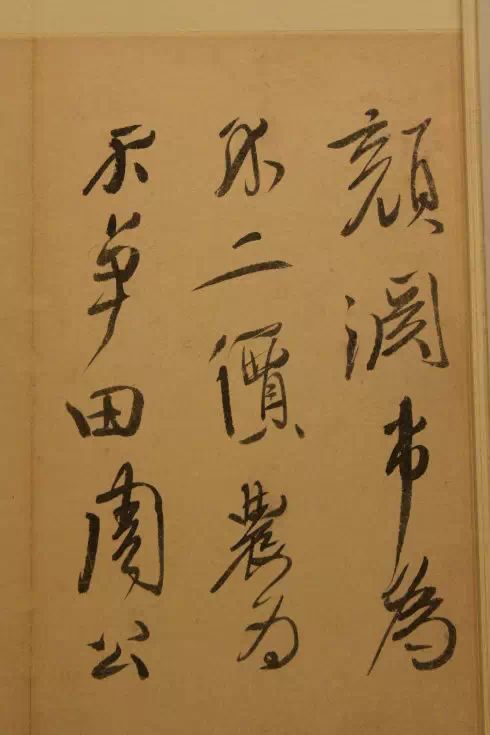 顏淵市為
不二價農為
不爭田周公